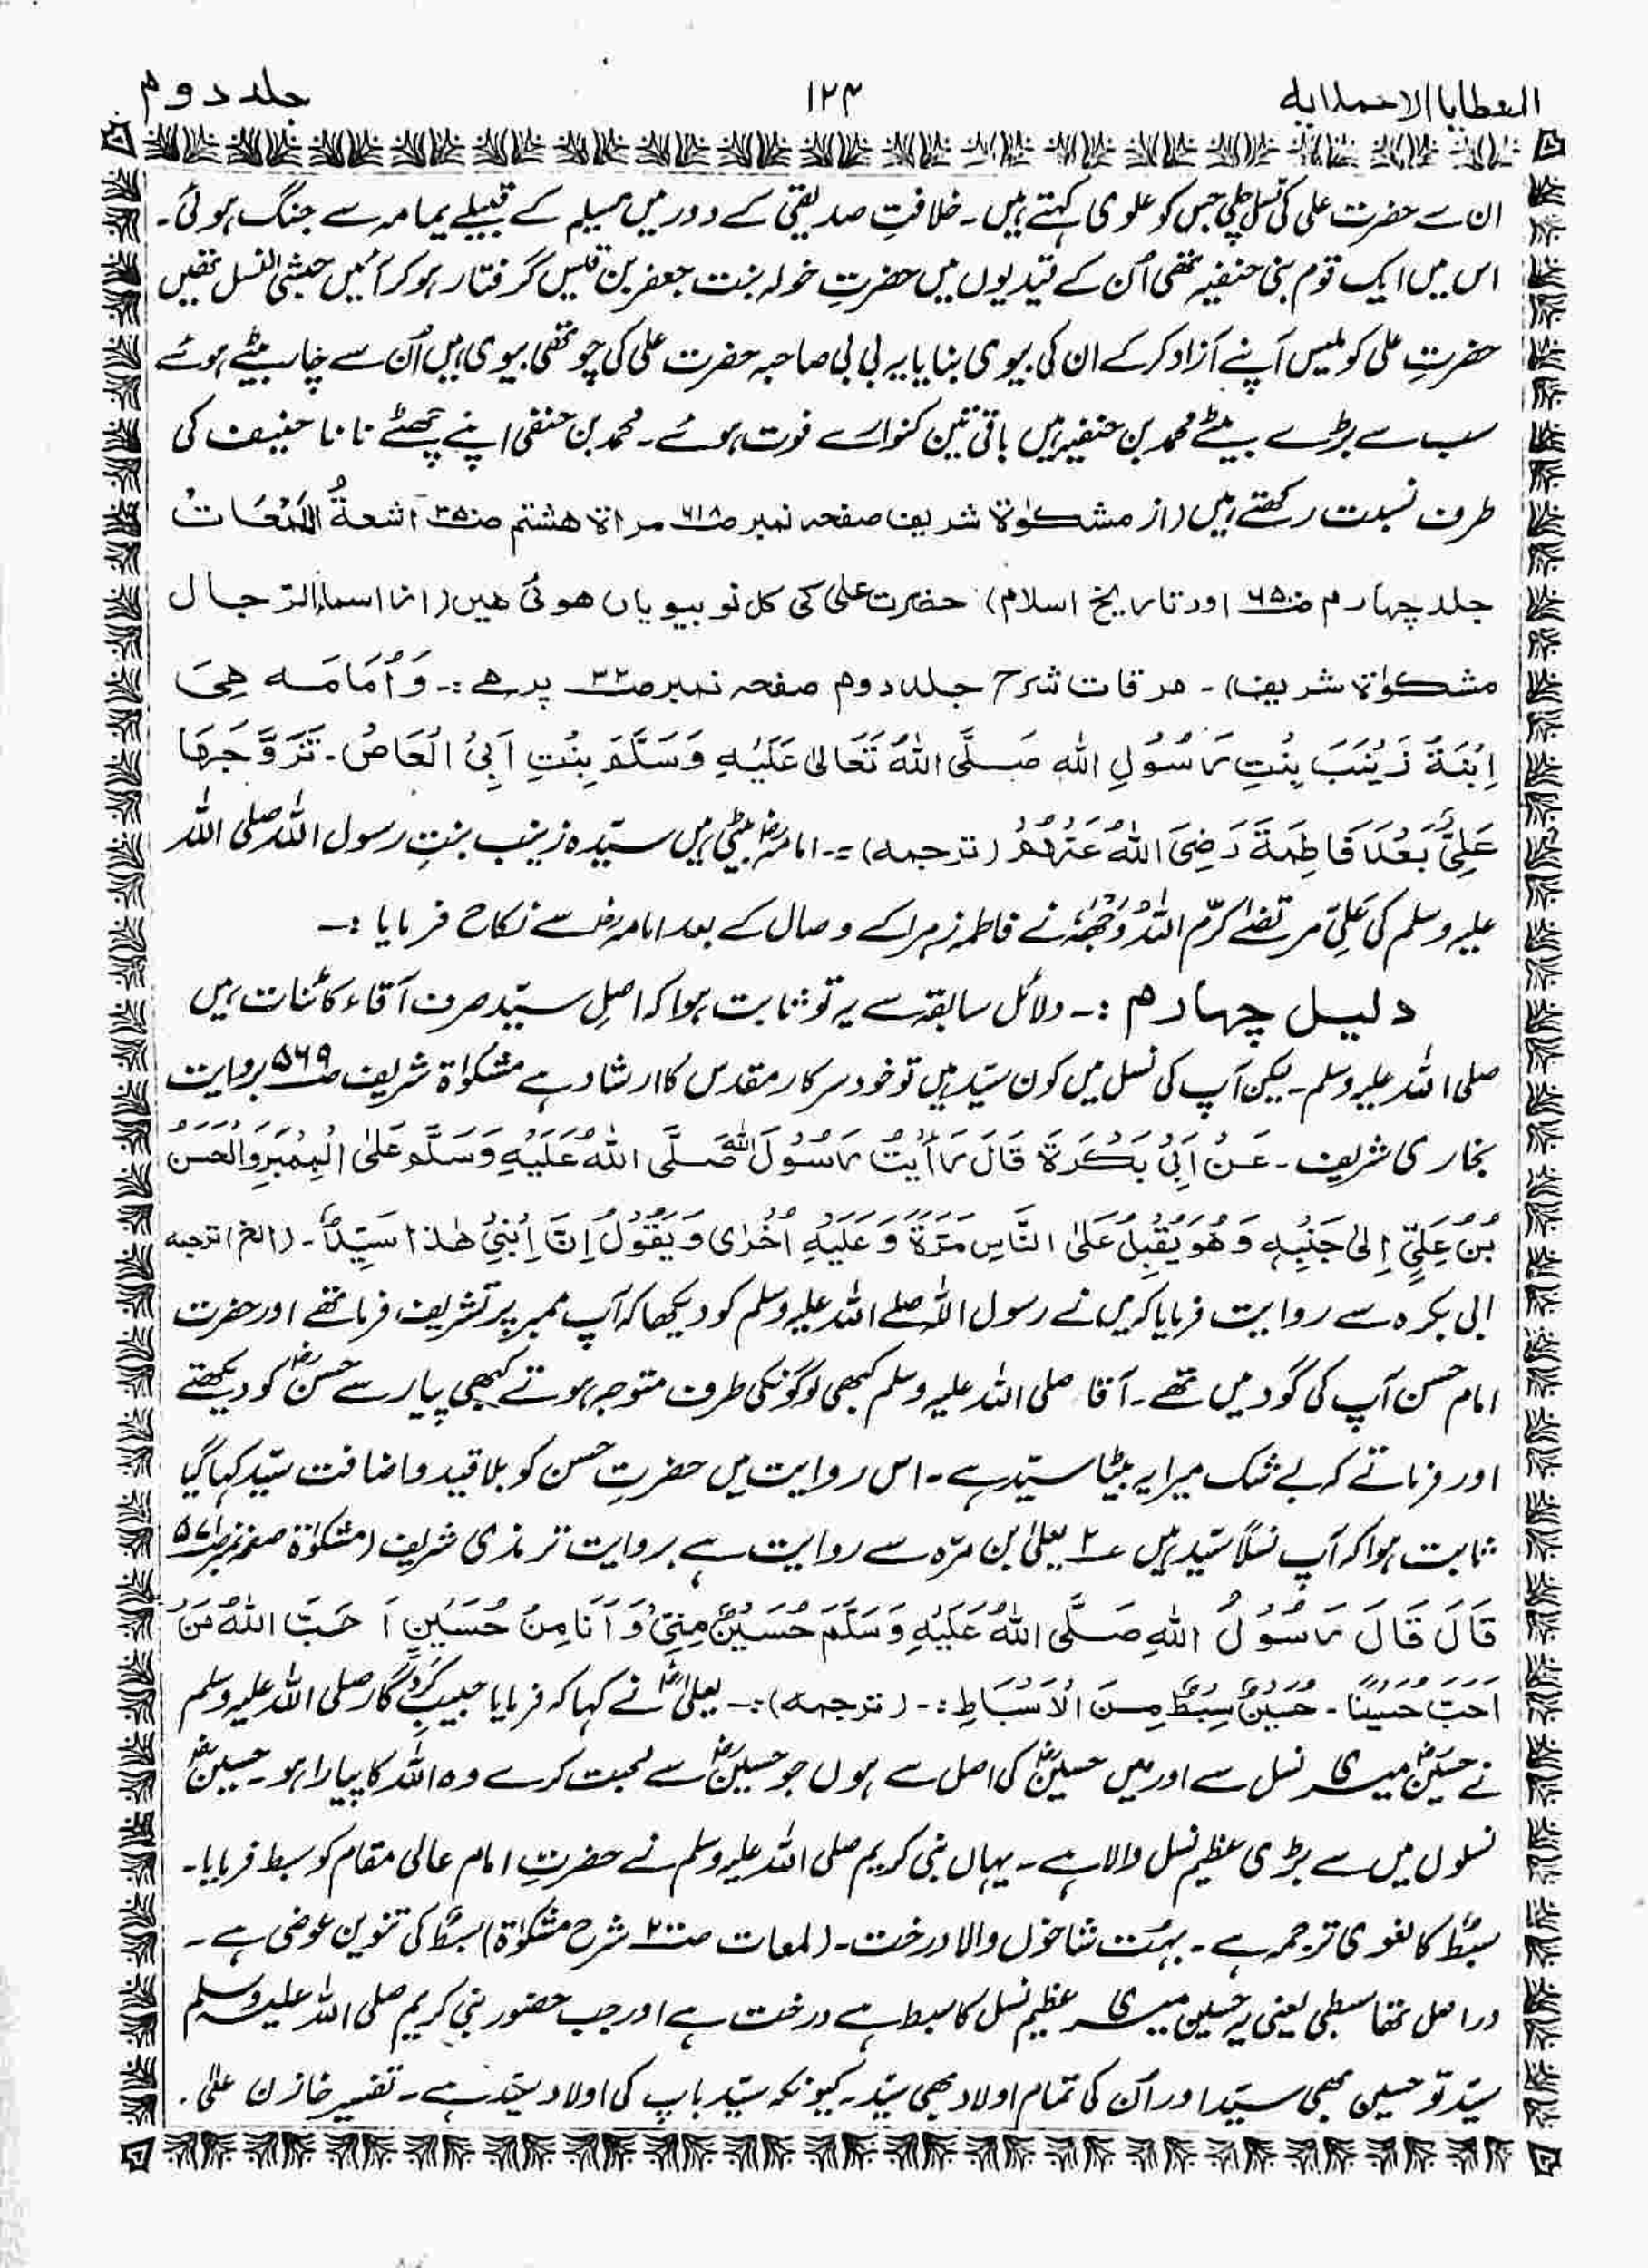 العطایا الاحمدایه ۱۲۴ جلد دوم
ان سے حضرت علی کی نسل چلی جس کو علوی کہتے ہیں۔ خلافتِ صدیقی کے دور میں مسیلمہ کے قبیلے یمامہ سے جنگ ہوئی۔
اس میں ایک قوم بنی حنفیہ تھی اُن کے قیدیوں میں حضرتِ خولہ بنت جعفر بن قیس گرفتار ہو کر آئیں حبشی النسل تھیں
حضرتِ علی کو ملیں آپنے آزاد کر کے ان کی بیوی بنایا یہ بی بی صاحبہ حضرت علی کی چوتھی بیوی ہیں اُن سے چار بیٹے ہوئے
سب سے بڑے بیٹے محمد بن حنفیہ ہیں باقی تین کنوارے فوت ہوئے۔ محمد بن حنفی اپنے چھٹے نانا حنیف کی
طرف نسبت رکھتے ہیں (از مشکوٰۃ شریف صفحہ نمبر ص۶۱۸ مراۃ ھشتم ص۳۵ اشعۃُ اللمعات
جلد چہارم ص۶۵ اور تاریخ اسلام) حضرت علی کی کل نو بیویاں ھوئی ھیں (از اسماء الرجال
مشکوٰۃ شریف)۔ مرقات شرح جلد دوم صفحہ نمبر ص۲۲ پر ھے :۔ وَاُمَامَہ ھِیَ
اِبْنَۃُ زَیْنَبَ بِنْتِ رَسُوْلِ اللہ صَلَّی اللہُ تَعَالیٰ عَلَیْہِ وَسَلَّمَ بِنْتِ اَبِیْ الْعَاصْ۔ تَزَوَّجَھَا
عَلِیٌّ بَعْدَ فَاطِمَۃَ رَضِیَ اللہُ عَنْہُمْ (ترجمہ) :۔ امامہؓ بیٹی ہیں سیّدہ زینب بنتِ رسول اللہ صلی اللہ
علیہ وسلم کی عَلِیِّ مرتضٰے کرّم اللہُ وَجْھَہٗ نے فاطمہ زہرا کے وصال کے بعد امامہؓ سے نکاح فرمایا :۔
دلیل چہارم :۔ دلائل سابقہ سے یہ تو ثابت ہوا کہ اصلِ سیّد صرف آقاء کائنات ہیں
صلی اللہ علیہ وسلم۔ لیکن آپ کی نسل میں کون سیّد ہیں تو خود سرکار مقدس کا ارشاد ہے مشکوٰۃ شریف ص۵۶۹ بروایت
بخاری شریف۔ عَنْ اَبِیْ بَکْرَۃَ قَالَ رَأَیْتُ رَسُوْلَ اللہِ صَلَّی اللہُ عَلَیْہِ وَسَلَّمَ عَلیٰ الْمِمْبَرِ وَالْحَسَنُ
بْنُ عَلِیٍّ اِلیٰ جَنْبِہٖ وَھُوَ یُقْبِلُ عَلیٰ النَّاسِ مَرَّۃً وَعَلَیْہِ اُخْرٰی وَیَقُوْلُ اِنَّ اِبْنِیْ ھٰذَا سَیِّدٌ۔ (الخ) ترجمہ
ابی بکرہ سے روایت فرمایا کہ میں نے رسول اللہ صلے اللہ علیہ وسلم کو دیکھا کہ آپ ممبر پر تشریف فرما تھے اور حضرت
امام حسن آپ کی گود میں تھے۔ آقا صلی اللہ علیہ وسلم کبھی لوگونکی طرف متوجہ ہوتے کبھی پیار سے حسنؓ کو دیکھتے
اور فرماتے کہ بے شک میرا یہ بیٹا سیّد ہے۔ اس روایت میں حضرتِ حسن کو بلا قید و اضافت سیّد کہا گیا
ثابت ہوا کہ آپ نسلاً سیّد ہیں ۲؎ یعلیٰ ابن مرّہ سے روایت ہے بروایت ترمذی شریف (مشکوٰۃ صفحہ نمبر ص۵۷۱
قَالَ قَالَ رَسُوْلُ اللہِ صَلَّی اللہُ عَلَیْہِ وَسَلَّمَ حُسَیْنٌ مِنِّیْ وَاَنَا مِنْ حُسَیْنٍ اَحَبَّ اللہُ مَنْ
اَحَبَّ حُسَیْنًا۔ حُسَیْنٌ سِبْطٌ مِنَ الْاَسْبَاطِ :۔ (ترجمہ) :۔ یعلیٰؓ نے کہا کہ فرمایا حبیبِ کردگار صلی اللہ علیہ وسلم
نے حسینؓ میری نسل سے اور میں حسینؓ کی اصل سے ہوں جو حسینؓ سے محبت کرے وہ اللہ کا پیارا ہو۔ حسینؓ
نسلوں میں سے بڑی عظیم نسل والا ہے۔ یہاں نبی کریم صلی اللہ علیہ وسلم نے حضرتِ امام عالی مقام کو سبط فرمایا۔
سبطٌ کا لغوی ترجمہ ہے۔ بہت شاخوں والا درخت۔ (لمعات ص۲۰ شرح مشکوٰۃ) سبطٌ کی تنوین عوضی ہے۔
دراصل تھا سبطی یعنی یہ حسین میری عظیم نسل کا سبط ہے درخت ہے اور جب حضور نبی کریم صلی اللہ علیہ وسلم
سیّد تو حسین بھی سیّد اور اُن کی تمام اولاد بھی سیّد۔ کیونکہ سیّد باپ کی اولاد سیّد ہے۔ تفسیر خازن علیٰ